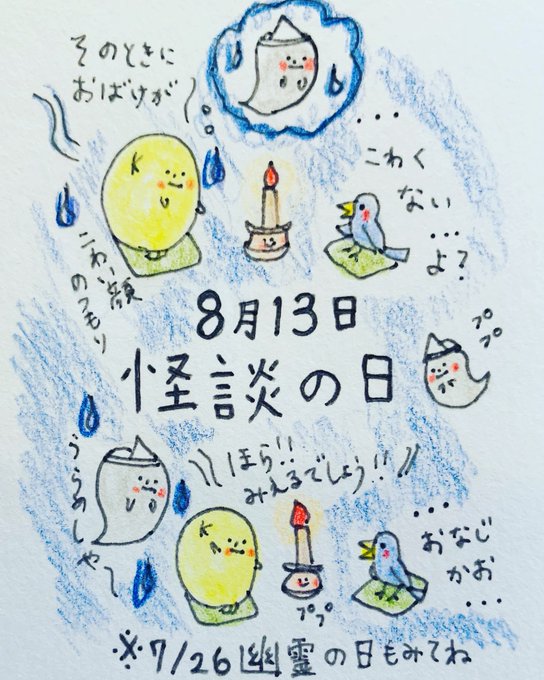 そのときに
おばけが〜
・・・
こわく
ない
・・・
よ？
K
こわい顔
のつもり
8月13日
怪談の日
プププ
うらめしや〜
ほら!!
みえるでしょう!!
K
・・・
おなじ
かお
・・・
ププ
※7/26幽霊の日もみてね